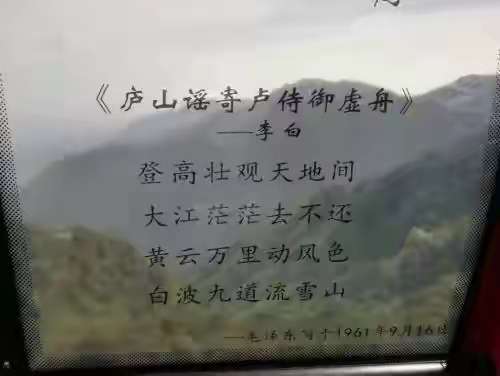 《庐山谣寄卢侍御虚舟》
——李白
登高壮观天地间
大江茫茫去不还
黄云万里动风色
白波九道流雪山
——毛泽东写于1961年9月16日